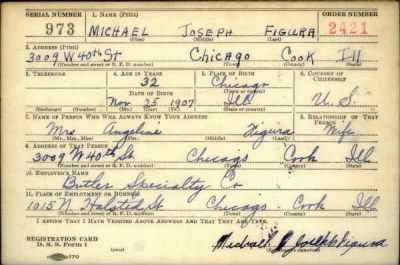 SERIAL NUMBER 1. NAME (Print) ORDER NUMBER
973 MICHAEL JOSEPH FIGURA 2421
(First) (Middle) (Last)
2. ADDRESS (Print)
3009 W 40th St Chicago Cook Ill
(Number and street or R. F. D. number) (Town) (County) (State)
3. TELEPHONE 4. AGE IN YEARS 5. PLACE OF BIRTH 6. COUNTRY OF CITIZENSHIP
32 Chicago
DATE OF BIRTH (Town or county)
Nov 25 1907 Ill U. S.
(Exchange) (Number) (Mo.) (Day) (Yr.) (State or country)
7. NAME OF PERSON WHO WILL ALWAYS KNOW YOUR ADDRESS 8. RELATIONSHIP OF THAT PERSON
Mrs Angeline Figura Wife
(Mr., Mrs., Miss) (First) (Middle) (Last)
9. ADDRESS OF THAT PERSON
3009 W 40th St. Chicago Cook Ill.
(Number and street or R. F. D. number) (Town) (County) (State)
10. EMPLOYER'S NAME
Butler Specialty Co
11. PLACE OF EMPLOYMENT OR BUSINESS
1015 N. Halsted St Chicago Cook Ill.
(Number and street or R. F. D. number) (Town) (County) (State)
I AFFIRM THAT I HAVE VERIFIED ABOVE ANSWERS AND THAT THEY ARE TRUE.
REGISTRATION CARD
D. S. S. Form 1 Michael Joseph Figura